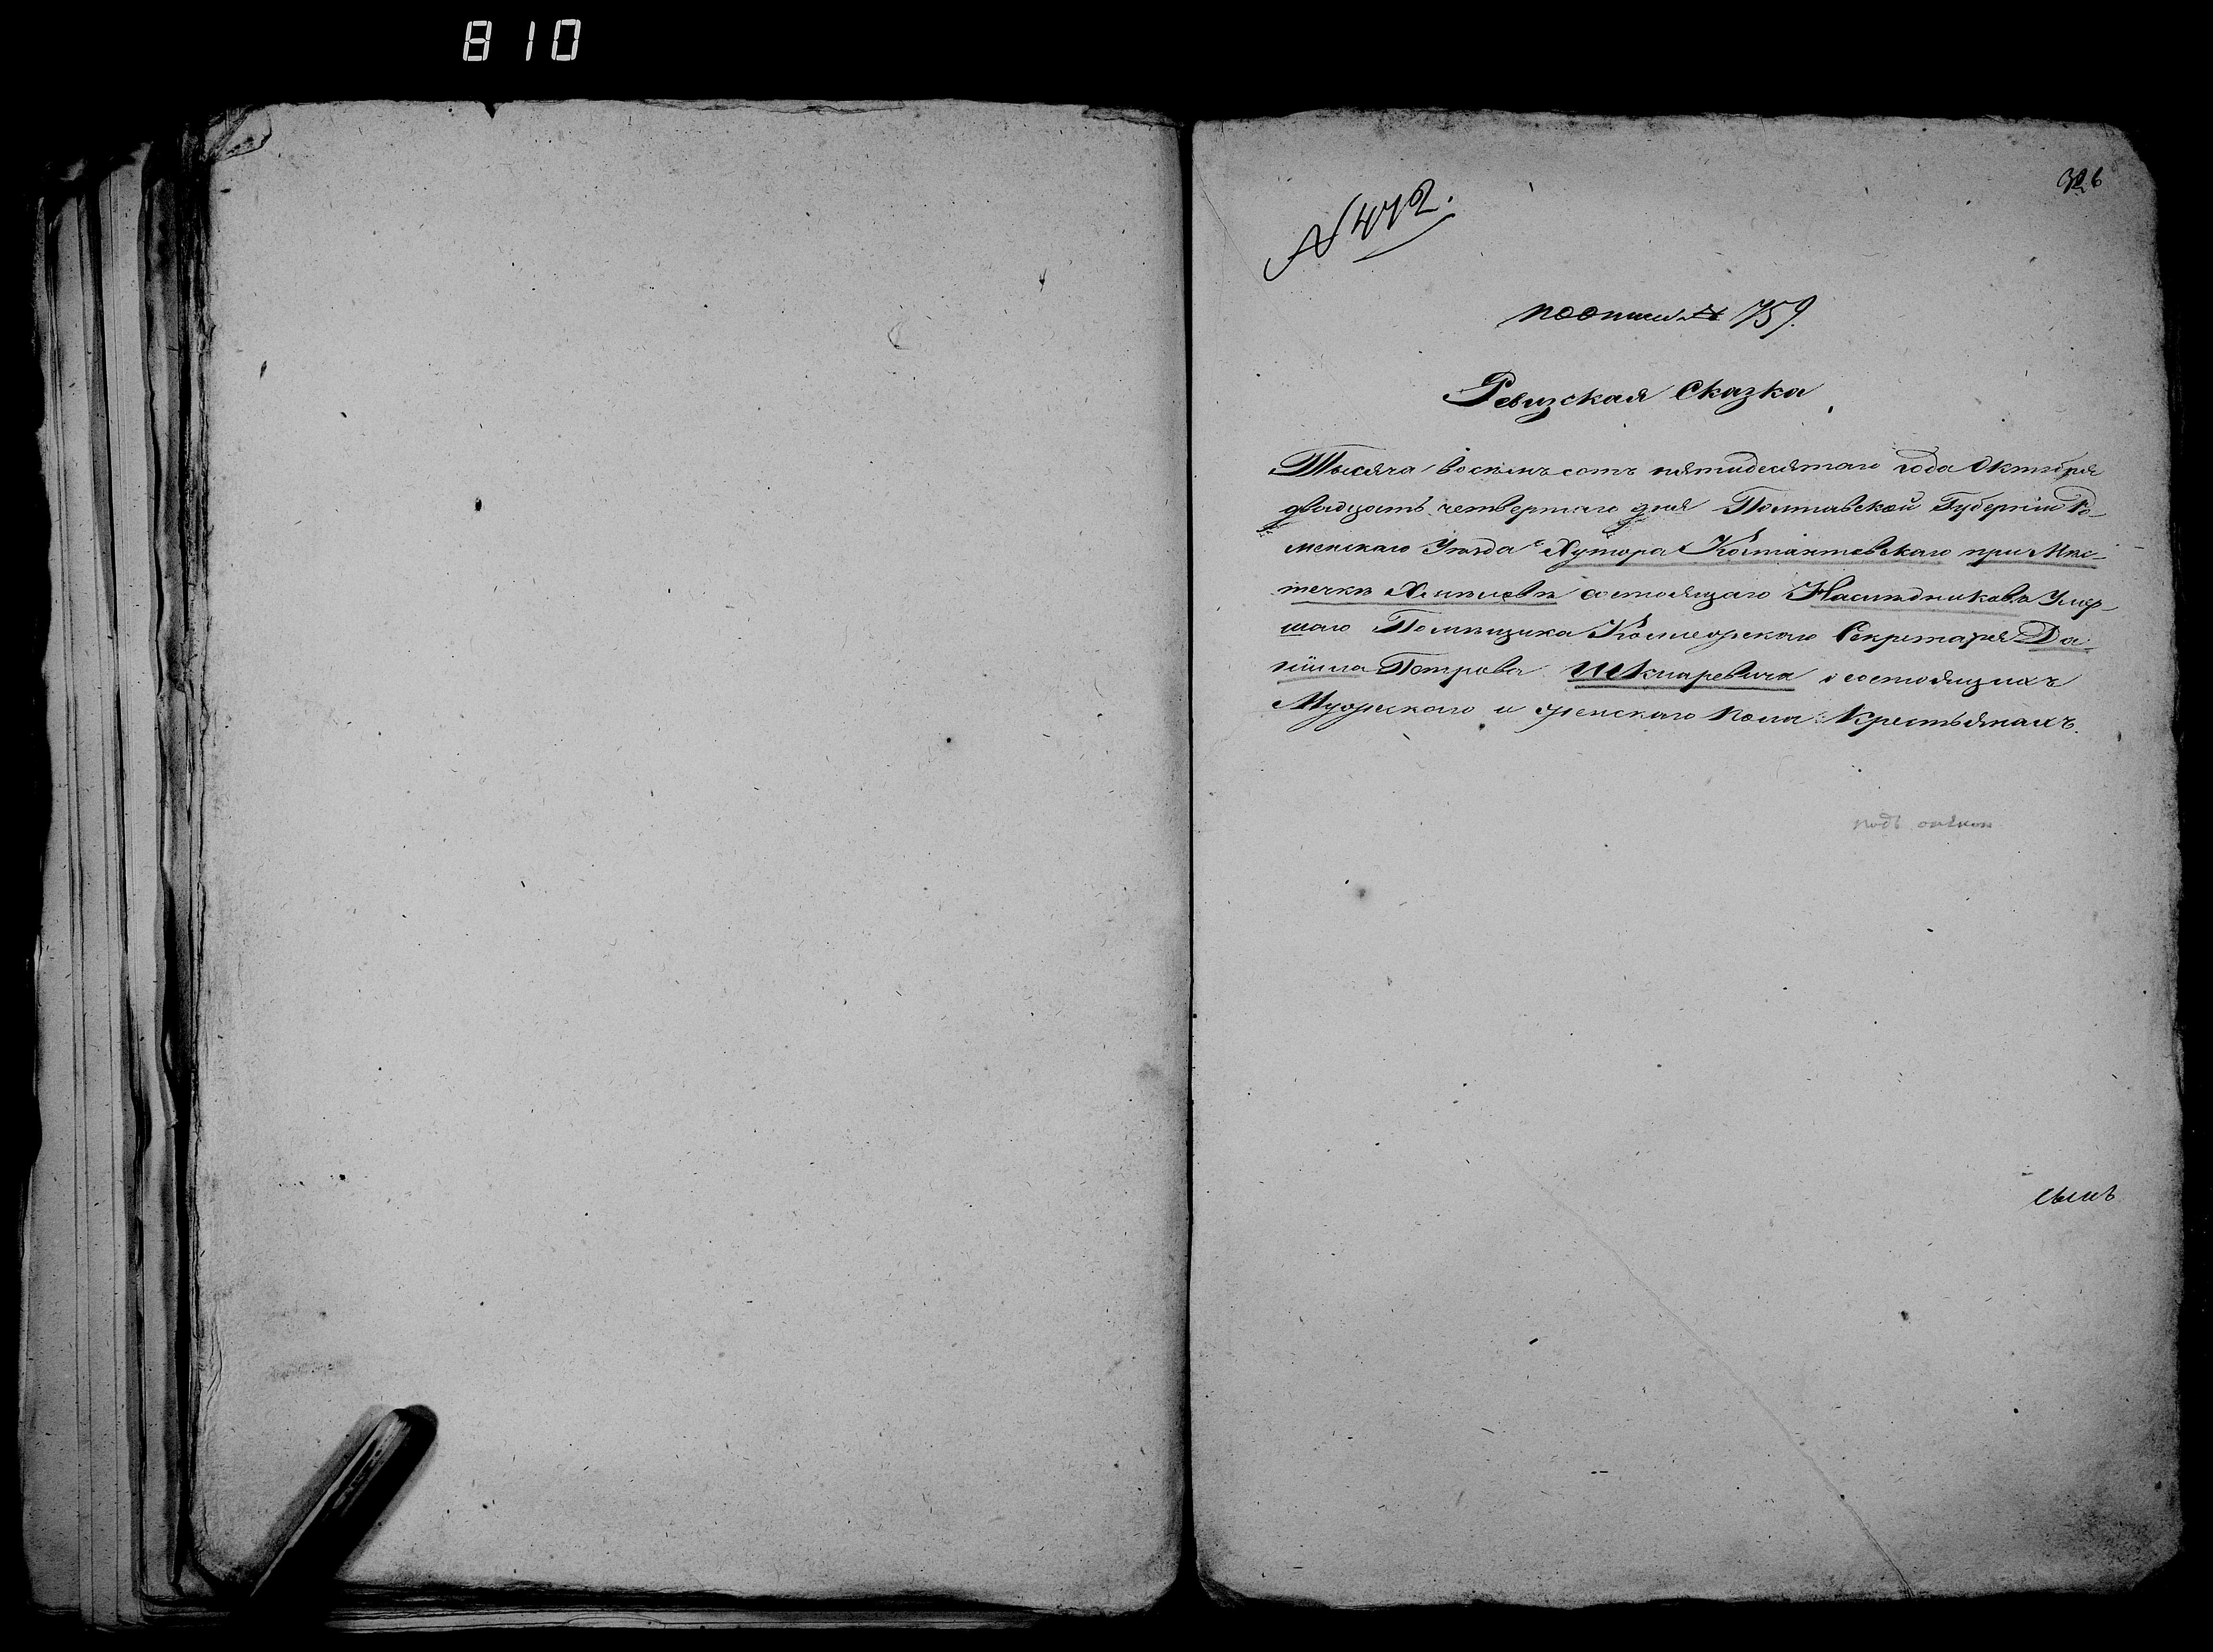 810
326
N 472.
по описи № 759.
Ревизская Сказка
Тысяча восемь сотъ пятидесятаго года Октября
двадцать четвертаго дня Полтавской Губерніи Ро-
менскаго Уезда Хутора Костантовскаго при Мѣс-
течкѣ Хмѣловѣ состоящаго Наслѣдниковъ Умер-
шаго Помѣщика Коллежскаго Секретаря Да-
ніила Петрова Шкларевича о состоящихъ
Мужескаго и женскаго пола Крестьянахъ.
подъ опекою
сынъ